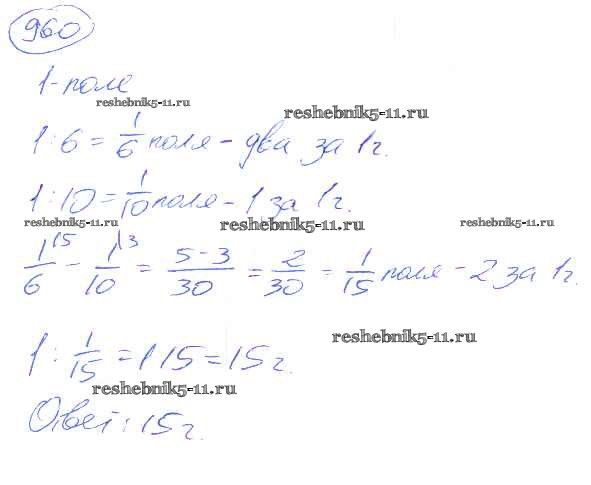 960
1 - поле
reshebnik5-11.ru
reshebnik5-11.ru
1 : 6 = 1/6 поля - два за 1 г.
1 : 10 = 1/10 поля - 1 за 1 г.
reshebnik5-11.ru
reshebnik5-11.ru
reshebnik5-11.ru
1/6 \5 - 1/10 \3 = (5 - 3)/30 = 2/30 = 1/15 поля - 2 за 1 г.
reshebnik5-11.ru
1 : 1/15 = 1 · 15 = 15 г.
reshebnik5-11.ru
Ответ: 15 г.